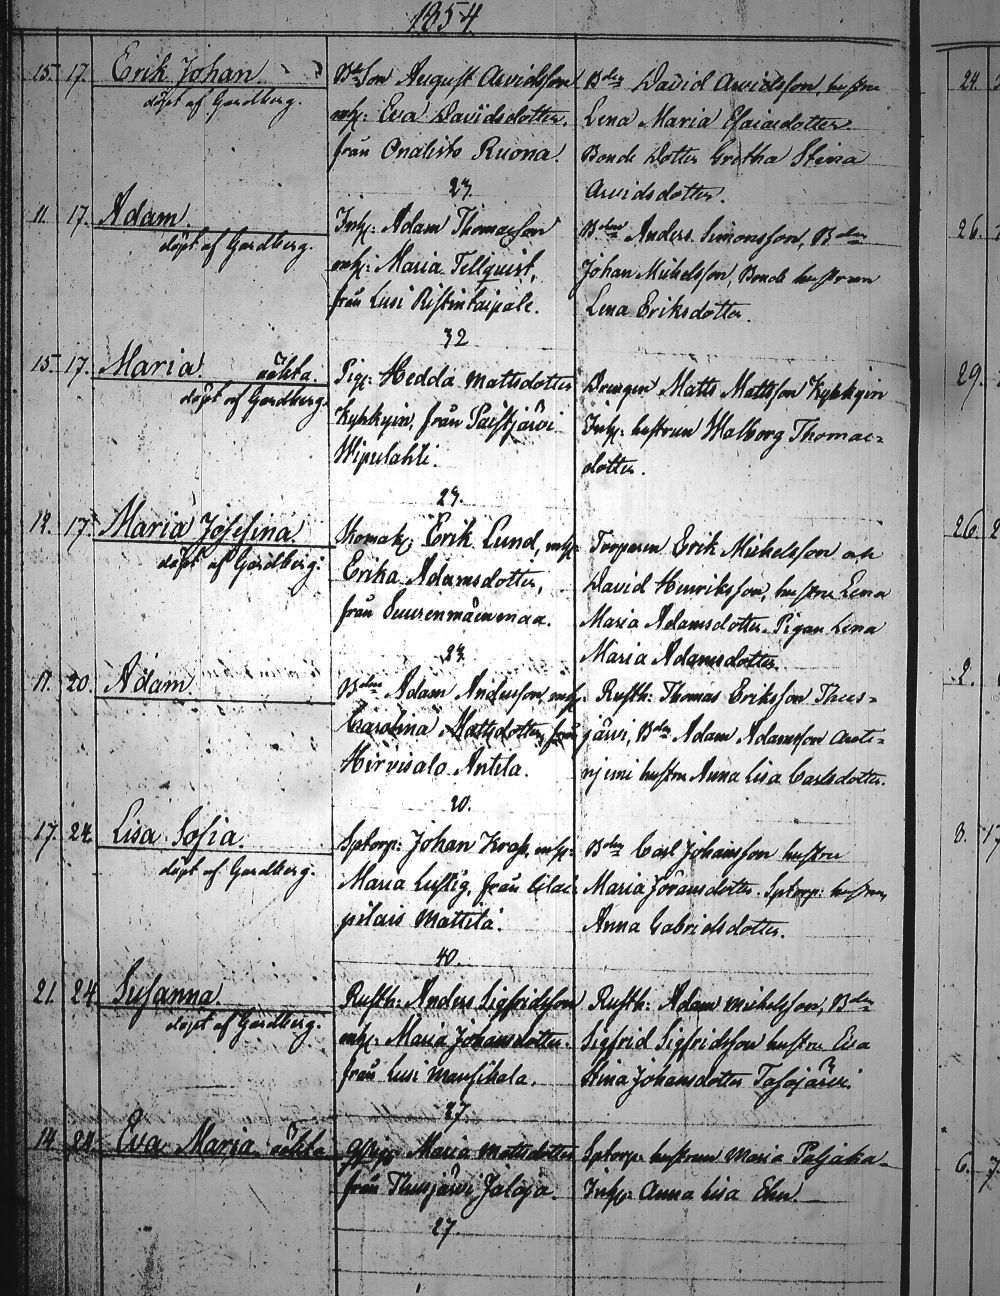 1854.
15. 17. Erik Johan.
döpt af Gardberg.
Bdeson August Arvidsson
mh: Eva Davidsdotter.
från Onalisto Ruona.
27.
Bden David Arvidsson, hustru
Lena Maria Esaiædotter.
Bonde Dotter Gretha Stina
Arvidsdotter.
11. 17. Adam.
döpt af Gardberg.
Inh: Adam Thomasson
mh: Maria Tellquist,
från Lusi Ristintaipale.
32
Anders Simonsson, Bden
Johan Mickelsson, Bonde hustrun
Lena Eriksdotter.
15. 17. Maria oäkta.
döpt af Gardberg.
Pig: Hedda Mattsdotter
Kyhkyin, från Paistjärvi
Wipulahti.
27.
Drengen Matts Mattsson Kyhkyin
Inh: hustrun Walborg Thomae-
dotter.
12. 17. Maria Josefina.
döpt af Gardberg.
Skomak: Erik Lund, mh:
Erika Adamsdotter,
från Suurenmäenmaa.
27.
Torparen Erik Mickelsson och
David Henriksson, hustru Lena
Maria Adamsdotter. Pigan Lina
Maria Adamsdotter
17. 20. Adam
Bden Adam Andersson, mh:
Carolina Mattsdotter, från
Hirvisalo Antila.
20.
Rusth: Thomas Eriksson Thuus-
järvi, Bden Adam Adamsson
hustru Anna Lisa Carlsdotter.
17. 24. Lisa Sofia.
döpt af Gardberg.
Sptorp: Johan Krap, mh:
Maria Lustig, från
Mattila.
40.
Bden Carl Johansson hustru
Maria Göransdotter. Sptorp: hustrun
Anna Gabrielsdotter.
21. 24 Susanna.
döpt af Gardberg.
Rusth: Anders Sigfridsson
mh: Maria Johansdotter.
från Lusi Mansikala.
37.
Rusth: Adam Mickelsson, Bden
Sigfrid Sigfridsson hustru Eva
Stina Johansdotter Tasajärvi
14. 24. Eva Maria oäkta
Maria Mattsdotter
från Thusjärvi Jaloja.
27.
Sptorp: hustrun Maria Paljaka.
Inh: Anna Lisa
24.
26.
29.
26. 2
2.
3. 17
6. 7.